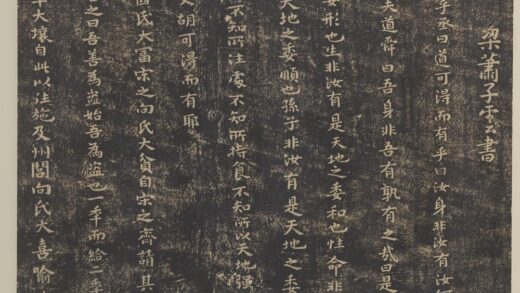 梁蕭子雲書
乎丞曰道可得而有乎曰汝身非汝有汝
夫道舜曰吾身非吾有孰有之哉曰是
委形也生非汝有是天地之委和也性命非
天地之委順也孫子非汝有是天地之委
不知所往處不知所持食不知所以天地強
又胡可得而有耶
國氏大富宋之向氏大貧自宋之齊請其
之曰吾善為盜始吾為盜也一年而給二年
年大壤自此以往施及州閭向氏大喜喻